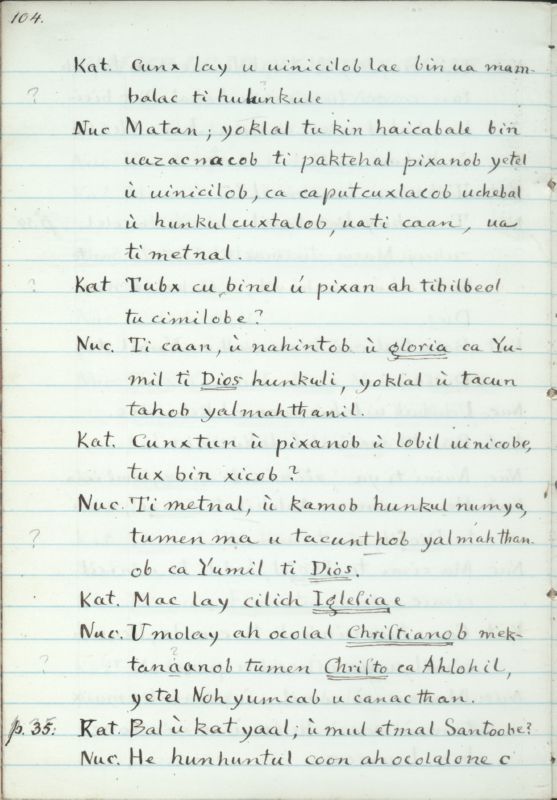 104.
Kat. Cunx lay u uinicilob lae bin ua mam-
? balac ti hulunkule
Nuc Matan; yoklal tu kin haicabale bin
uazacnacob ti paktehal pixanob yetel
ù uinicilob, ca caputcuxlacob uchebal
ù hunkulcuxtalob, uati caan, ua
ti metnal.
? Kat Tubx cu binel ú pixan ah tibilbeol
tu cimilobe?
Nuc. Ti caan, ù nahintob ù gloria ca Yu-
mil ti Dios hunkuli, yoklal ù tacun
tahob yalmahthanil.
Kat. Cunxtun ù pixanob ù lobil uinicobe,
tux bin xicob?
Nuc. Ti metnal, ù kamob hunkul numya,
? tumen ma u tacunthob yalmahthan-
ob ca Yumil ti Dios.
Kat. Mac lay cilich Iglesiae
Nuc. U molay ah ocolal Christianob mek-
? tanaanob tumen Christo ca Ahlohil,
yetel Noh yumcab u canacthan.
p. 35: Kat. Bal ù kat yaal; ù mul etmal Santoobe?
Nuc. He hunhuntul coon ahocolalone c